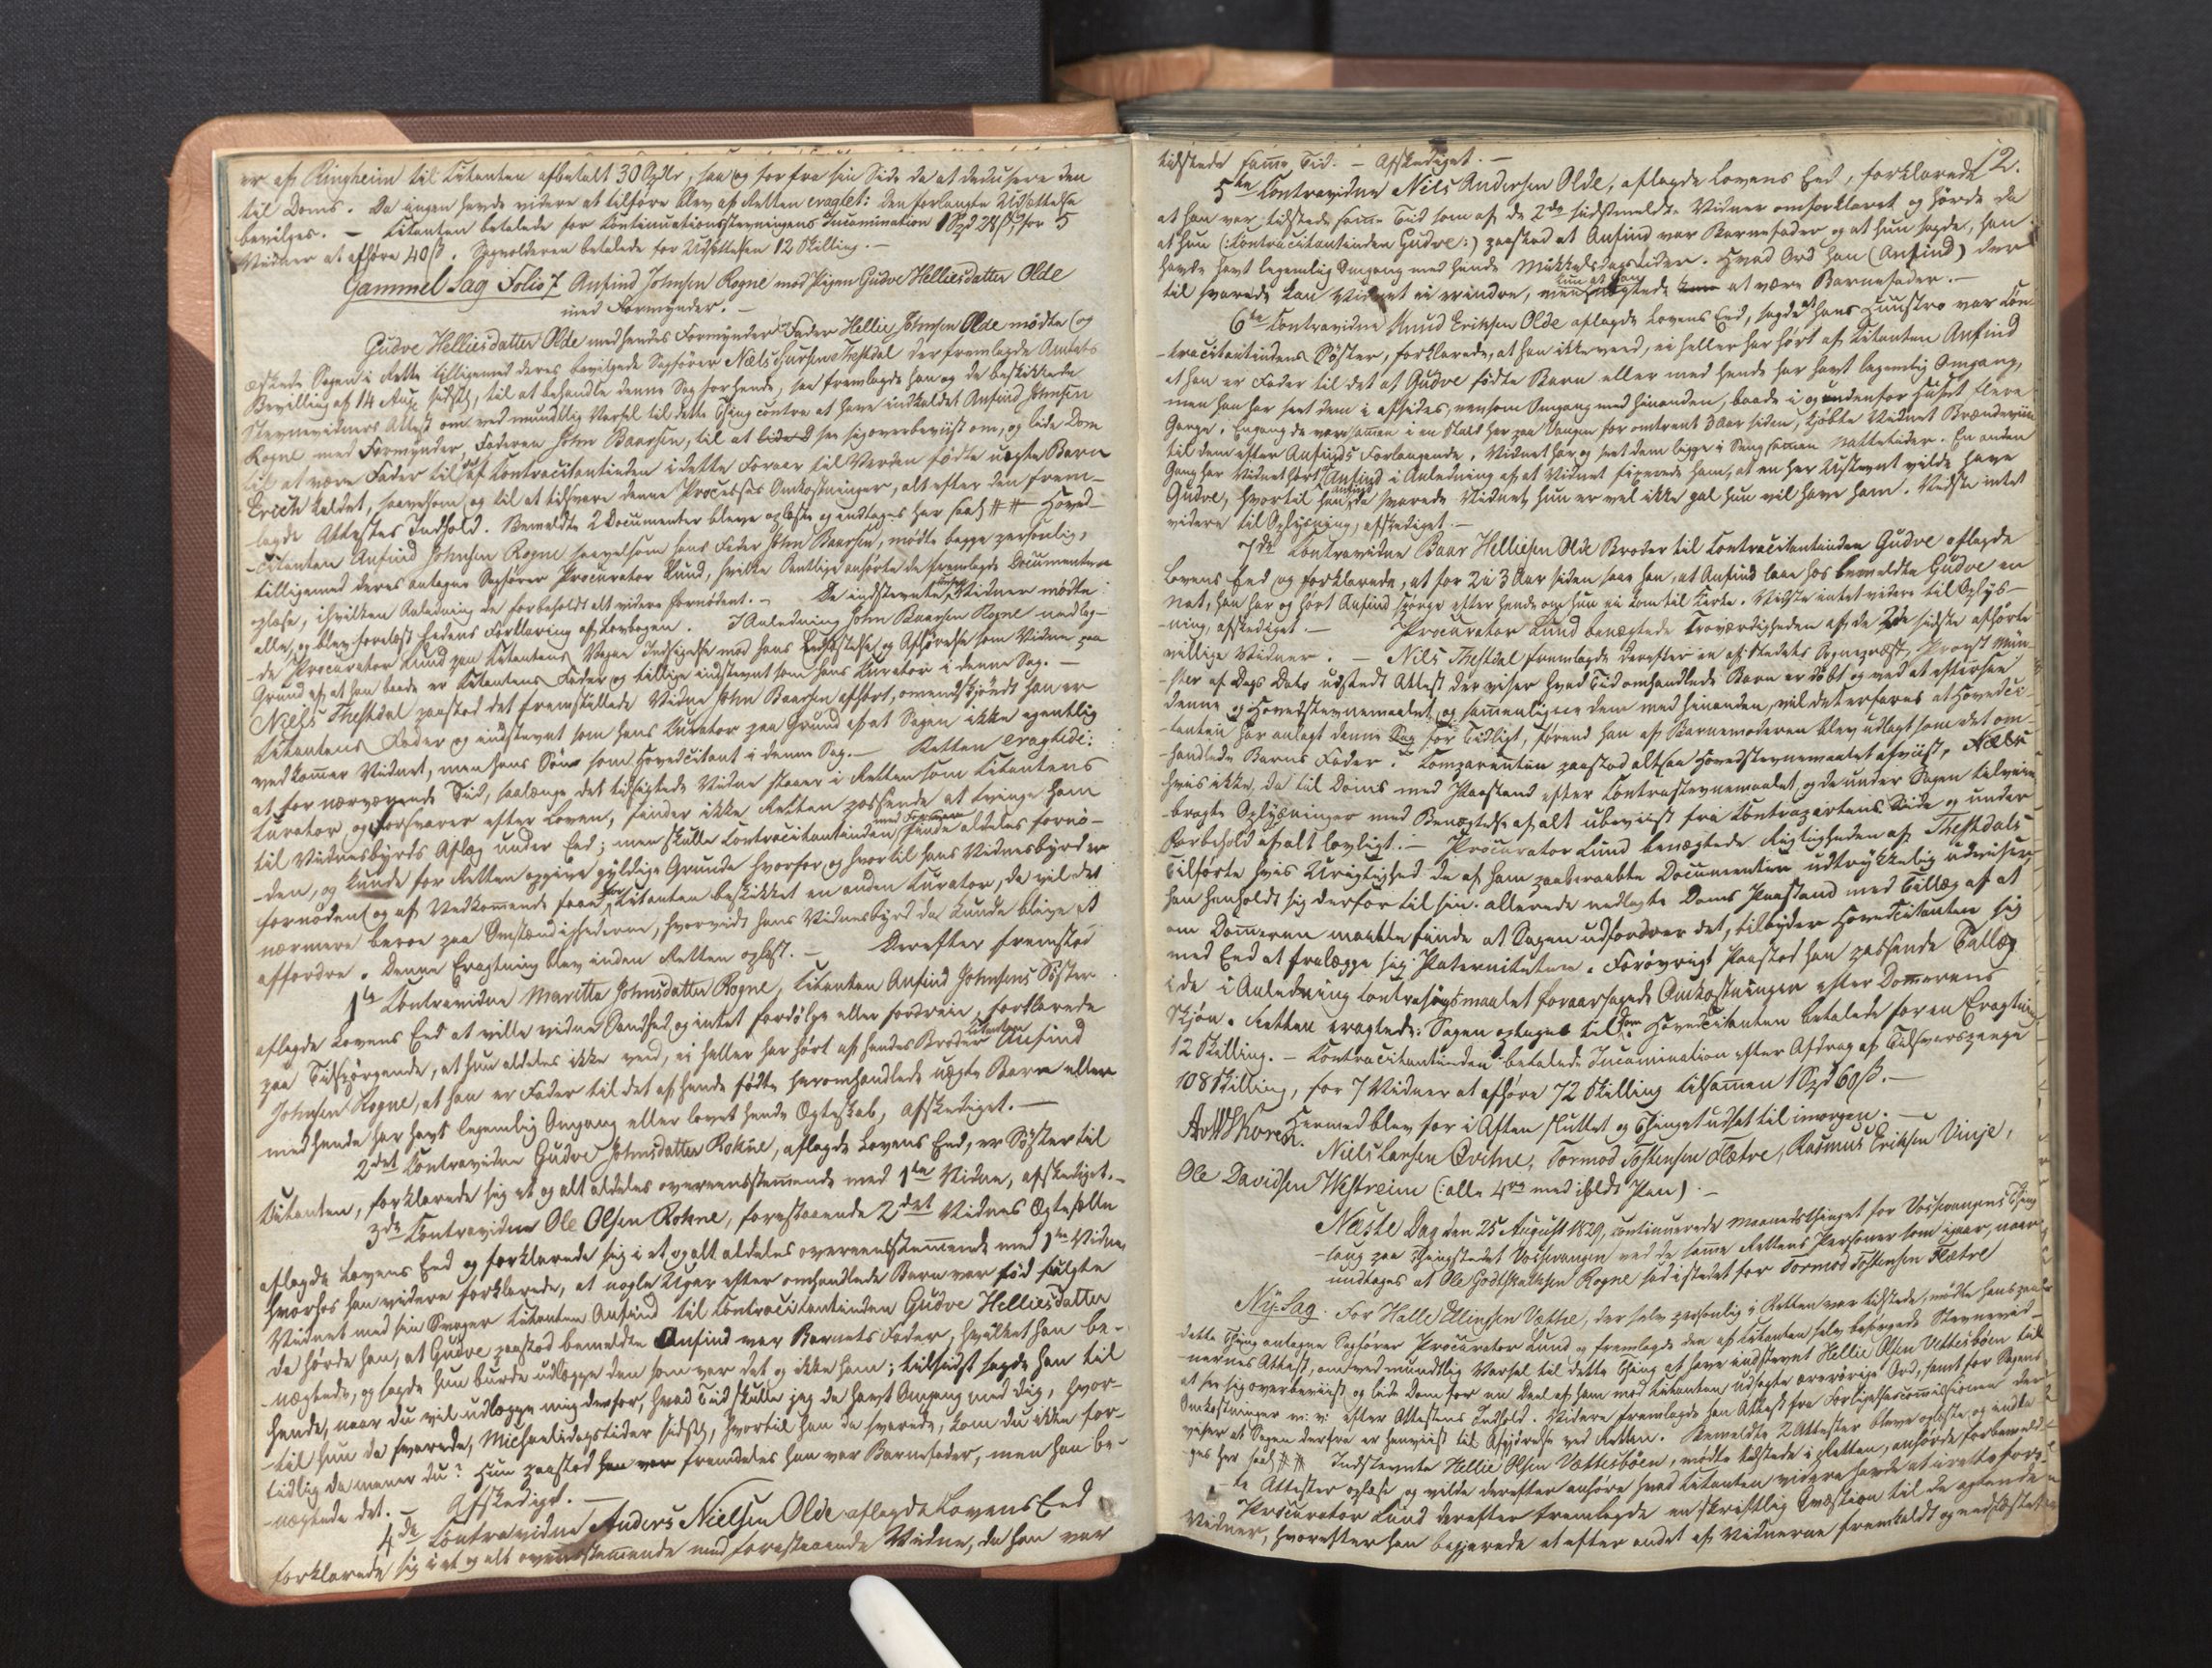 er af Ringheim til Citanten afbetalt 30 Spdlr, saa og for fra sin Side da at deducere den
til Doms. Da ingen havde videre at tilføre blev af Retten eragtet: den forlangte Udsættelse
bevilges. — Citanten betalede for Continuationsstevningens Incamination 1 Spd 24 ß, for 5
Vidner at afhøre 40 ß. Sagvolderen betalede for Udsættelsen 12 Skilling. —
Gammel Sag Folio 7 Anfind Johnsen Rogne mod Pigen Gudve Helliesdatter Olde
med Formynder. —
Gudve Helliesdatter Olde med hendes Formynder Fader Hellie Johnsen Olde mødte og
æskede Sagen i Rette tilligemed deres bevilgede Sagfører Niels Thestdal der fremlagde Amtets
Bevilling af 14 Aug sidstl, til at behandle denne Sag for hende, saa fremlagde han og de beskikkede
Stevnevidners Attest om ved mundtlig Varsel til dette Thing contra at have indkaldet Anfind Johnsen
Rogne med Formynder, Faderen John Baarsen, til at see sig overbeviist om, og lide Dom
til at være Fader til det af Contracitantinden i dette Foraar til Verden fødte uægte Barn
Erich kaldet, saavelsom og til at tilsvare denne Processes Omkostninger, alt efter den frem-
lagde Attestes Indhold. Bemeldte 2 Documenter bleve oplæste og indtages her saal ## Hoved-
-Citanten Anfind Johnsen Rogne saavelsom hans Fader John Baarsen, mødte begge personlig,
tilligemed deres antagne Sagfører Procurator Lund, hvilke samtlige anhørte de fremlagde Documenter
oplæse, i hvilken Anledning de forbeholdt alt videre fornødent. — De indstevnte Vidner mødte
alle, og blev forelæst Eedens Forklaring af Lovbogen. I Anledning John Baarsen Rogne nedlag-
de Procurator Lund paa Citantens Vegne Indsigelse mod hans Eedfæstelse og Afhørelse som Vidne paa
Grund af at han baade er Citantens Fader og tillige indstevnt som hans Curator i denne Sag. —
Niels Thestdal paastod det fremstillede Vidne John Baarsen afhørt, omendskjøndt han er
Citantens Fader og indstevnt som hans Curator paa Grund af at Sagen ikke egentlig
vedkommer Vidnet, men hans Søn som Hovedcitant i denne Sag. — Retten eragtede:
at for nærværende Tid, saalænge det tilsigtede Vidne staaer i Retten som Citantens
Curator, og Forsvarer efter Loven, finder ikke Retten passende at tvinge ham
til Vidnesbyrds Aflæg under Eed; men skulle Contracitantinden med Formynder finde aldeles fornø-
den, og kunde for Retten opgive gyldige Grunde hvorfor og hvortil hans Vidnesbyrd er
fornøden og af Vedkommende faaes for Citanten beskikket en anden Curator, da vil det
nærmere beroe paa Omstændighederne, hvorvidt hans Vidnesbyrd da kunde blive at
affordre. Denne Eragtning blev inden Retten oplæst. — Derefter fremstod
1te Contravidne Maritta Johnsdatter Rogne, Citanten Anfind Johnsens Søster
aflagde Lovens Eed at ville vidne Sandhed og intet fordølge eller fordreie, forklarede
paa Tilspørgende, at hun aldeles ikke veed, ei heller har hørt af hendes Broder Citanten Anfind
Johnsen Rogne, at han er Fader til det af hende fødte heromhandlede uægte Barn eller
med hende har havt legemlig Omgang eller lovet hende Ægteskab, afskediget. —
2det Contravidne Gudve Johnsdatter Rokne, aflagde Lovens Eed, er Søster til
Citanten, forklarede sig et og alt aldeles overensstemmende med 1te Vidne, afskediget. —
3de Contravidne Ole Olsen Rokne, foranstaaende 2det Vidnes Ægtefælle
aflagde Lovens Eed og forklarede sig i et og alt aldeles overensstemmende med 1te Vidne
hvorhos han videre forklarede, at nogle Uger efter omhandlede Barn var fød fulgte
Vidnet med sin Svoger Citanten Anfind til Contracitantinden Gudve Helliesdatter
da hørde han, at Gudve paastod bemeldte Anfind var Barnets Fader, hvilket han be-
-nægtede, og sagde hun burde udlægge den som var det og ikke ham; tilsidst sagde han til
hende, naar du vil udlægge mig derfor, hvad Tid skulle jeg da havt Omgang med dig, hvor-
-til hun da svarede, Michaelidagstider sidstl, hvortil han da svarede, kom du ikke for-
tidlig da mener du? Hun paastod fremdeles han var Barnefader, men han be-
-nægtede det. — Afskediget. —
4de Contravidne Anders Nielsen Olde aflagde Lovens Eed
forklarede sig i et og alt overensstemmende med foranstaaende Vidne, da han var
tilstede samme Tid. — Afskediget. —
12.
5te Contravidne Niels Andersen Olde, aflagde Lovens Eed, forklarede
at han var tilstede samme Tid som af de 2de sidstmeldte Vidner omforklaret og hørde da
at hun (: Contracitantinden Gudve:) paastod at Anfind var Barnefader og at hun sagde, han
havde havt legemlig Omgang med hende Mikkelsdagstider. Hvad Ord han (Anfind) der-
til svarede kan Vidnet ei erindre, kun at han nægtede at være Barnefader. —
6te Contravidne Knud Erichsen Olde aflagde Lovens Eed, sagde at hans Huustro var Con-
-tracitantindens Søster, forklarede, at han ikke veed, ei heller har hørt af Citanten Anfind
at han er Fader til det af Gudve fødte Barn eller med hende har havt legemlig Omgang,
men han har seet dem i afsides, eensom Omgang med hinanden, baade i og udenfor Huset flere
Gange. Engang de var sammen i en Stald her paa Vangen for omtrent 3 Aar siden, kjøbte Vidnet Brændeviin
til dem efter Anfinds Forlangende. Vidnet har og seet dem ligge i Seng sammen Nattetider. En anden
Gang har Vidnet hørt Anfind i Anledning af at Vidnet fixerede ham, at en her Ustevnt vilde have
Gudve, hvortil Anfind da svarede Vidnet, hun er vel ikke gal hun vil have ham. Vidste intet
videre til Oplysning, afskediget. —
7de Contravidne Baar Helliesen Olde Broder til Contracitantinden Gudve aflagde
Lovens Eed og forklarede, at for 2 à 3 Aar siden saae han, at Anfind laae hos bemeldte Gudve en
Nat, han har og hørt Anfind spørge efter hende om hun ei kom til Kirke. Vidste intet videre til Oplys-
-ning, afskediget. — Procurator Lund benægtede Troværdigheden af de 2de sidste afhørte
villige Vidner. — Niels Thestdal fremlagde derefter en af Stedets Sognepræst, Provst Mün-
-ster af Dags Dato udstedt Attest der viser hvad Tid omhandlede Barn er døbt og ved at eftersee
denne og Hovedstevnemaalet, og sammenligne dem med hinanden, vil det erfares at Hovedci-
-tanten har anlagt denne Sag for tidligt, førend han af Barnemoderen blev udlagt som det om-
-handlede Barns Fader. Comparentin paastod altsaa Hovedstevnemaalet afviist,
hvis ikke, da til Doms med Paastand efter Contrastevnemaalet, og de under Sagen tilveie-
bragte Oplysninger med Benægtelse af alt ubeviist fra Contrapartens Side og under
Forbehold af alt lovligt. — Procurator Lund benægtede Rigtigheden af Thestdals
Tilførte hvis Urigtighed de af ham paaberaabte Documenter udtrykkelig udviser
han henholdt sig derfor til sin allerede nedlagte Doms Paastand med Tillæg af at
om Dommeren maatte finde at Sagen udfordrer det, tilbyder Hovedcitanten sig
med Eed at fralægge sig Paterniteten. Forøvrigt paastod han passende Tillæg
i de i Anledning Contrasøgsmaalet foraarsagede Omkostninger efter Dommerens
Skjøn. Retten eragtede: Sagen optages til Dom. Hovedcitanten betalede for en Eragtning
12 Skilling. — Contracitantinden betalede Incamination efter Afdrag af Tilsvarspenge
108 Skilling, for 7 Vidner at afhøre 72 Skilling tilsammen 1 Spd 60 ß. —
Hermed blev for i Aften sluttet og Thinget udsat til imorgen. —
AvWSKoren.
Niels Larsen Qvitne, Tormod Tostensen Flætre, Rasmus Erichsen Vinje,
Ole Davidsen Westreim (: alle 4re med iholdt Pen). —
Næste Dag den 25 August 1829, continuerede Maanedsthinget for Vossevangens Thing-
-laug paa Thingstedet Vossevangen ved de samme Rettens Personer som igaar, naar
undtages at Ole Godtskalksen Rogne sad istedet for Tormod Tostensen Flætre
Ny Sag. For Halle Ellingsen Væthe, der selv personlig i Retten var tilstede, mødte hans paa
dette Thing antagne Sagfører Procurator Lund og fremlagde den af Citanten selv besørgede Stevnevid-
nernes Attest, om ved mundtlig Varsel til dette Thing at have indstevnt Hellie Olsen Vettesbøen til
at see sig overbeviist og lide Dom for en Deel af ham mod Citanten udsagte ærerørige Ord, samt for Sagens
Omkostninger m: v: efter Attestens Indhold. Videre fremlagde han Attest fra Forligelsescommissionen der
viser at Sagen derfra er henviist til Afgjørelse ved Retten. Bemeldte 2 Attester bleve oplæste og indta-
ges her saal ## Indstevnte Hellie Olsen Vættesbøen, mødte tilstede i Retten, anhørde forbemeld-
-te Attester oplæse og vilde derefter anhøre hvad Citanten videre havde at irettefører.
Procurator Lund derefter fremlagde en skriftlig Qvæstion til de agtende
Vidner, hvorefter han begjærede at efter andet af Vidnerne fremkaldt og eedfæstet